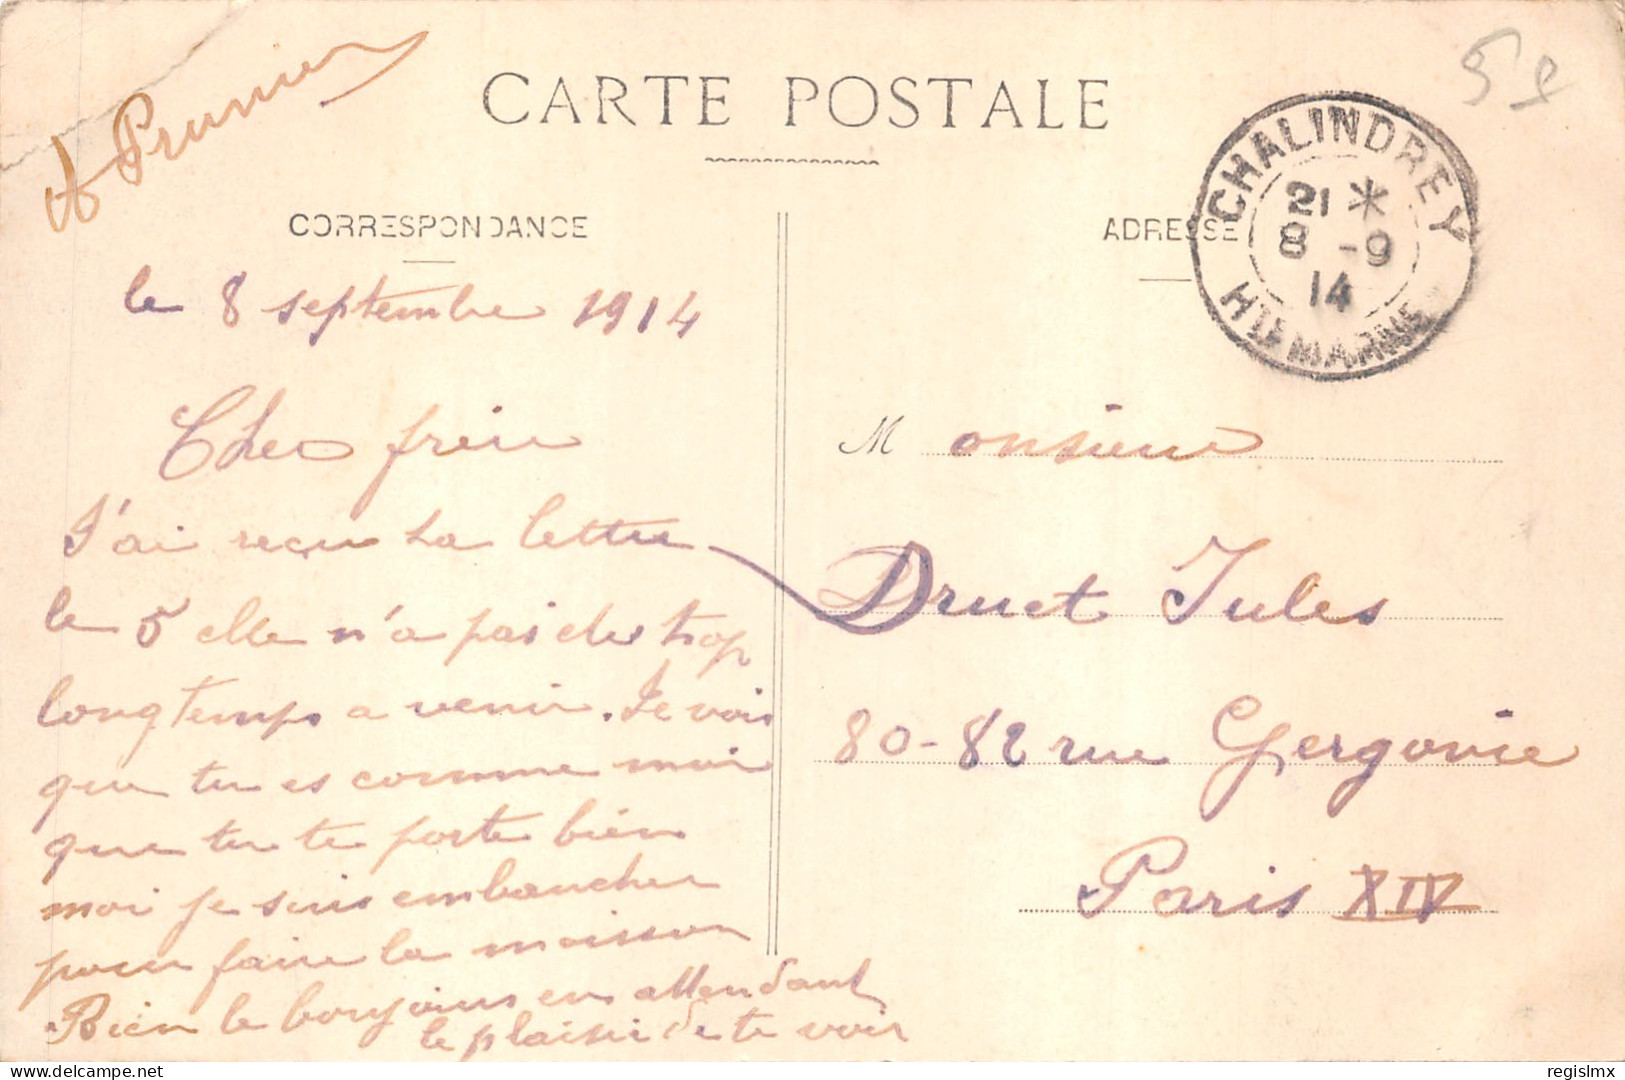 A Prunier
CARTE POSTALE
59
CORRESPONDANCE
ADRESSE
CHALINDREY
21 *
8 -9
14
HTE MARNE
le 8 septembre 1914
Cher frère
J'ai reçu ta lettre
le 5 elle n'a pas etes trop
longtemps a venir. Je vois
que tu es comme moi
que tu te porte bien
moi je suis embaucher
pour faire la moisson
Bien le bonjours en attendant
le plaisir de te voir
Monsieur
Druet Jules
80-82 rue Gergovie
Paris XIV
delcampe.net
regislmx